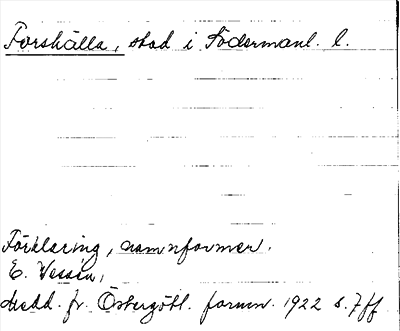 Torshälla, stad i Södermanl. l.
Förklaring, namnformer.
E. Wessén,
Medd. fr. Östergötl. fornm. 1922 s. 7 ff